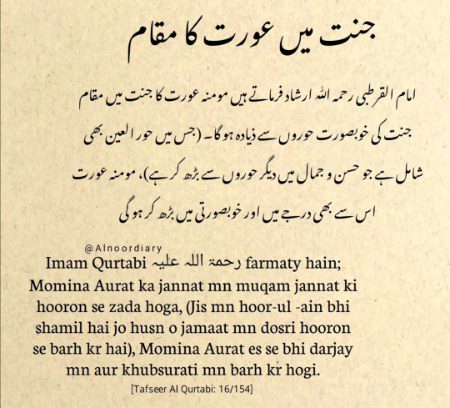 جنت میں عورت کا مقام
امام القرطبی رحمہ اللہ ارشاد فرماتے ہیں مومنہ عورت کا جنت میں مقام
جنت کی خوبصورت حوروں سے ذیادہ ہوگا۔ (جس میں حور العین بھی
شامل ہے جو حسن و جمال میں دیگر حوروں سے بڑھ کر ہے)، مومنہ عورت
اس سے بھی درجے میں اور خوبصورتی میں بڑھ کر ہوگی
@Alnoordiary
Imam Qurtabi رحمة اللہ علیہ farmaty hain;
Momina Aurat ka jannat mn muqam jannat ki
hooron se zada hoga, (Jis mn hoor-ul -ain bhi
shamil hai jo husn o jamaat mn dosri hooron
se barh kr hai), Momina Aurat es se bhi darjay
mn aur khubsurati mn barh kr hogi.
[Tafseer Al Qurtabi: 16/154]